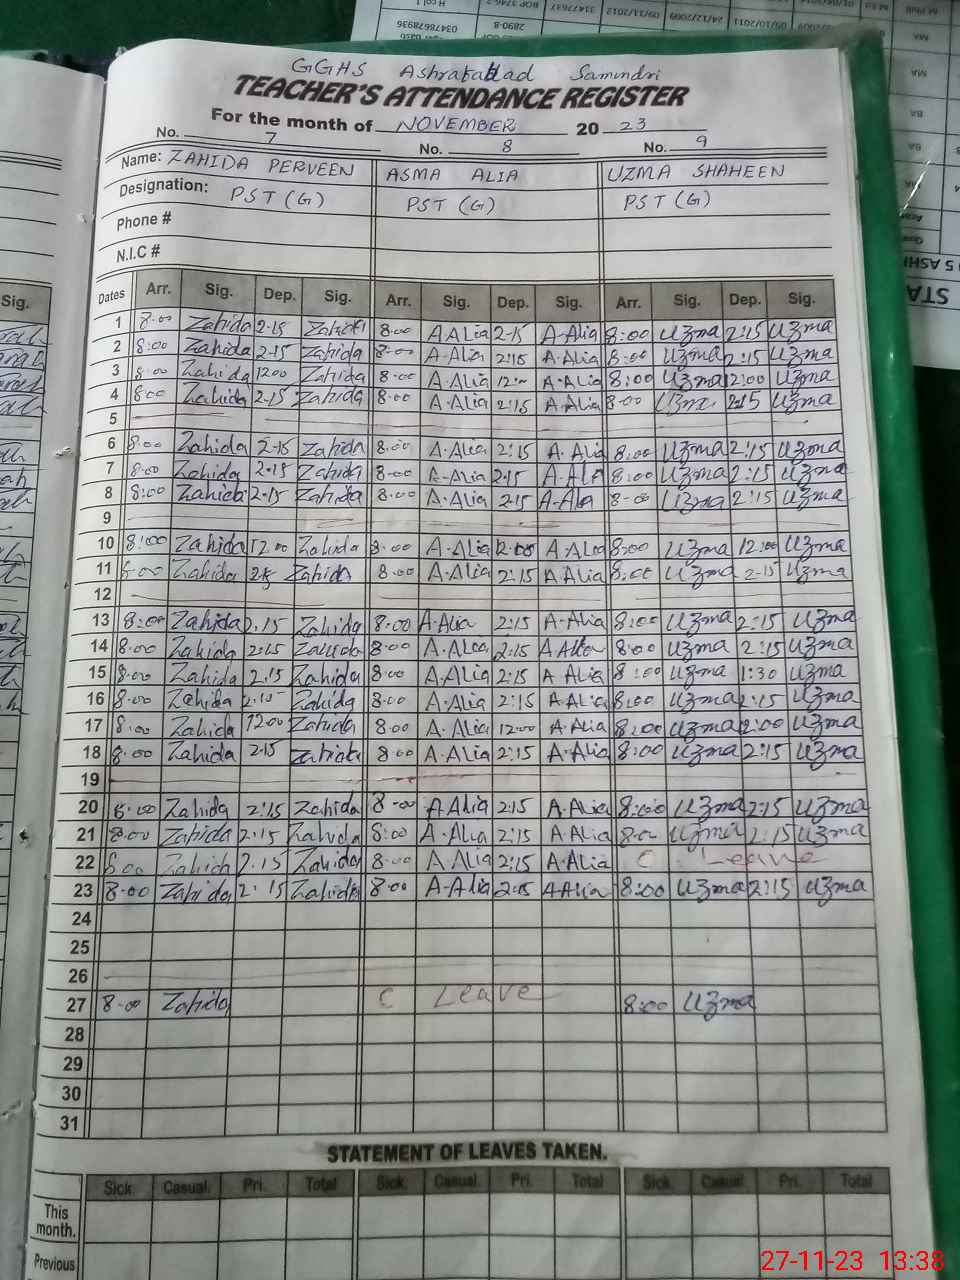 GGHS Ashrafabad Samundri
TEACHER'S ATTENDANCE REGISTER
For the month of NOVEMBER 20 23
No. 7 No. 8 No. 9
Name: ZAHIDA PERVEEN ASMA ALIA UZMA SHAHEEN
Designation: PST (G) PST (G) PST (G)
Phone #
N.I.C #
Dates Arr. Sig. Dep. Sig. Arr. Sig. Dep. Sig. Arr. Sig. Dep. Sig.
1 8-00 Zahida 2-15 Zahida 8-00 A Alia 2-15 A-Alia 8:00 Uzma 2:15 Uzma
2 8:00 Zahida 2-15 Zahida 8-00 A-Alia 2:15 A.Alia 8:00 Uzma 2:15 Uzma
3 8:00 Zahida 1200 Zahida 8-00 A.Alia 12:00 A.Alia 8:00 Uzma 12:00 Uzma
4 8:00 Zahida 2-15 Zahida 8-00 A.Alia 2:15 A.Alia 8-00 Uzma 2:15 Uzma
5
6 8:00 Zahida 2-15 Zahida 8:00 A-Alia 2:15 A.Alia 8:00 Uzma 2:15 Uzma
7 8-00 Zahida 2-15 Zahida 8-00 A-Alia 2-15 A.Ala 8:00 Uzma 2:15 Uzma
8 8:00 Zahida 2-15 Zahida 8-00 A.Alia 2-15 A-Ala 8-00 Uzma 2:15 Uzma
9
10 8:00 Zahida 12.00 Zahida 8-00 A.Alia 12-00 A.Alia 8:00 Uzma 12:00 Uzma
11 8-00 Zahida 2-15 Zahida 8.00 A.Alia 2:15 A Alia 8:00 Uzma 2-15 Uzma
12
13 8:00 Zahida 2.15 Zahida 8.00 A-Alia 2:15 A-Alia 8:00 Uzma 2:15 Uzma
14 8.00 Zahida 2:15 Zahida 8-00 A.Alia 2:15 A Alia 8:00 Uzma 2:15 Uzma
15 8-00 Zahida 2.15 Zahida 8-00 A.Alia 2:15 A Alia 8:00 Uzma 1:30 Uzma
16 8-00 Zahida 2.15 Zahida 8-00 A.Alia 2:15 A.Alia 8:00 Uzma 2:15 Uzma
17 8:00 Zahida 1200 Zahida 8.00 A.Alia 12-00 A.Alia 8:00 Uzma 12:00 Uzma
18 8:00 Zahida 2-15 Zahida 8-00 A.Alia 2:15 A.Alia 8:00 Uzma 2:15 Uzma
19
20 8:00 Zahida 2:15 Zahida 8-00 A.Alia 2:15 A.Alia 8:00 Uzma 2:15 Uzma
21 8:00 Zahida 2:15 Zahida 8:00 A.Alia 2:15 A.Alia 8:00 Uzma 2:15 Uzma
22 8:00 Zahida 2:15 Zahida 8-00 A.Alia 2:15 A.Alia C. Leave
23 8-00 Zahida 2:15 Zahida 8-00 A-Alia 2:15 A Alia 8:00 Uzma 2:15 Uzma
24
25
26
27 8-00 Zahida C Leave 8:00 Uzma
28
29
30
31
STATEMENT OF LEAVES TAKEN.
Sick Casual Pri. Total Sick Casual Pri. Total Sick Casual Pri. Total
This month.
Previous
Sig.
27-11-23 13:38